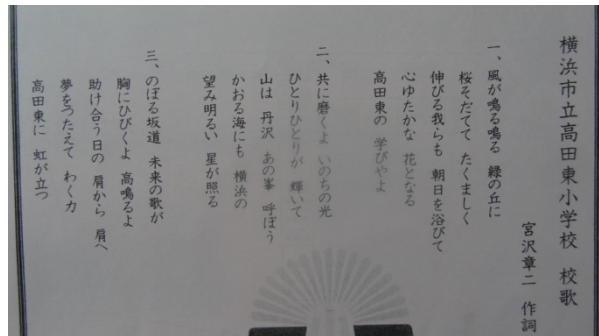 横浜市立高田東小学校 校歌
宮沢章二 作詞
一、風が鳴る鳴る 緑の丘に
桜そだてて たくましく
伸びる我らも 朝日を浴びて
心ゆたかな 花となる
高田東の 学びやよ
二、共に磨くよ いのちの光
ひとりひとりが 輝いて
山は 丹沢 あの峯 呼ぼう
かおる海にも 横浜の
望み明るい 星が照る
三、のぼる坂道 未来の歌が
胸にひびくよ 高鳴るよ
助け合う日の 肩から 肩へ
夢をつたえて わく力
高田東に 虹が立つ